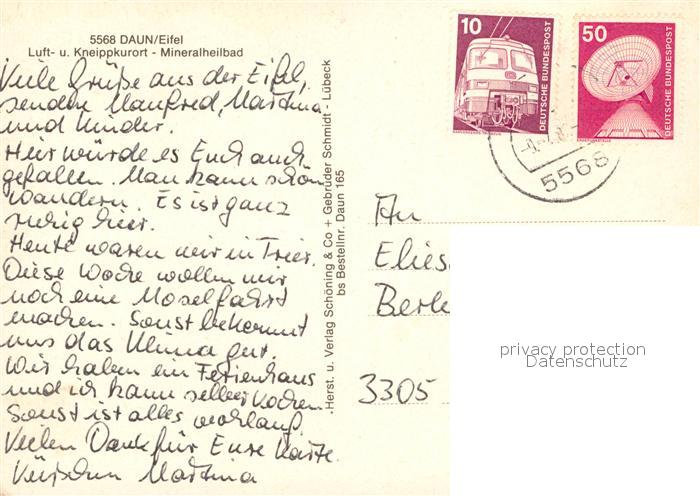 5568 DAUN/Eifel
Luft- u. Kneippkurort - Mineralheilbad
Viele Grüße aus der Eifel,
senden Manfred, Martina
und Kinder.
Hier würde es Euch auch
gefallen. Man kann schön
wandern. Es ist ganz
ruhig hier.
Heute waren wir in Trier.
Diese Woche wollen wir
noch eine Moselfahrt
machen. Sonst bekommt
uns das Klima gut.
Wir haben ein Ferienhaus
und ich kann selber kochen.
Sonst ist alles wohlauf.
Vielen Dank für Eure Karte.
Martina
Herst. u. Verlag Schöning & Co + Gebrüder Schmidt - Lübeck
bs Bestellnr. Daun 165
10
DEUTSCHE BUNDESPOST
50
DEUTSCHE BUNDESPOST
5568
An
Elies
Berl
3305
privacy protection
Datenschutz